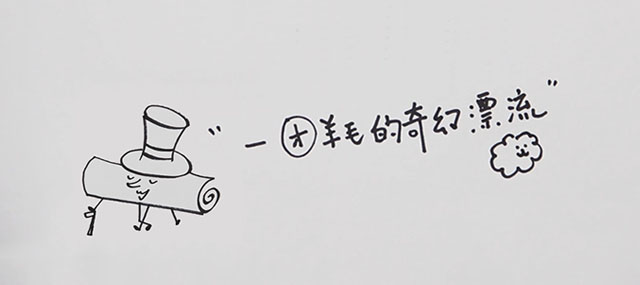 "一团羊毛的奇幻漂流"